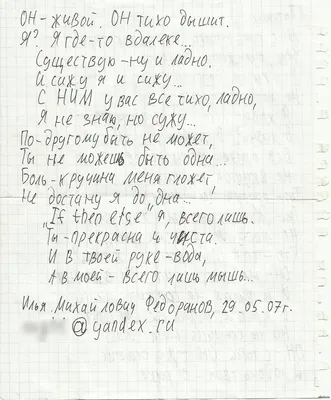 ОН - живой. ОН тихо дышит.
Я? Я где-то вдалеке...
Существую - ну и ладно.
И сижу я и сижу...
С НИМ у вас все тихо, ладно,
Я не знаю, но сужу...
По-другому быть не может,
Ты не можешь быть одна...
Боль-кручина меня гложет,
Не достану я до „дна...
„If then else" я, всего лишь.
Ты - прекрасна и чиста.
И в твоей руке - вода,
А в моей - всего лишь мышь...
Илья Михайлович Федоранов, 29.05.07г.
@yandex.ru